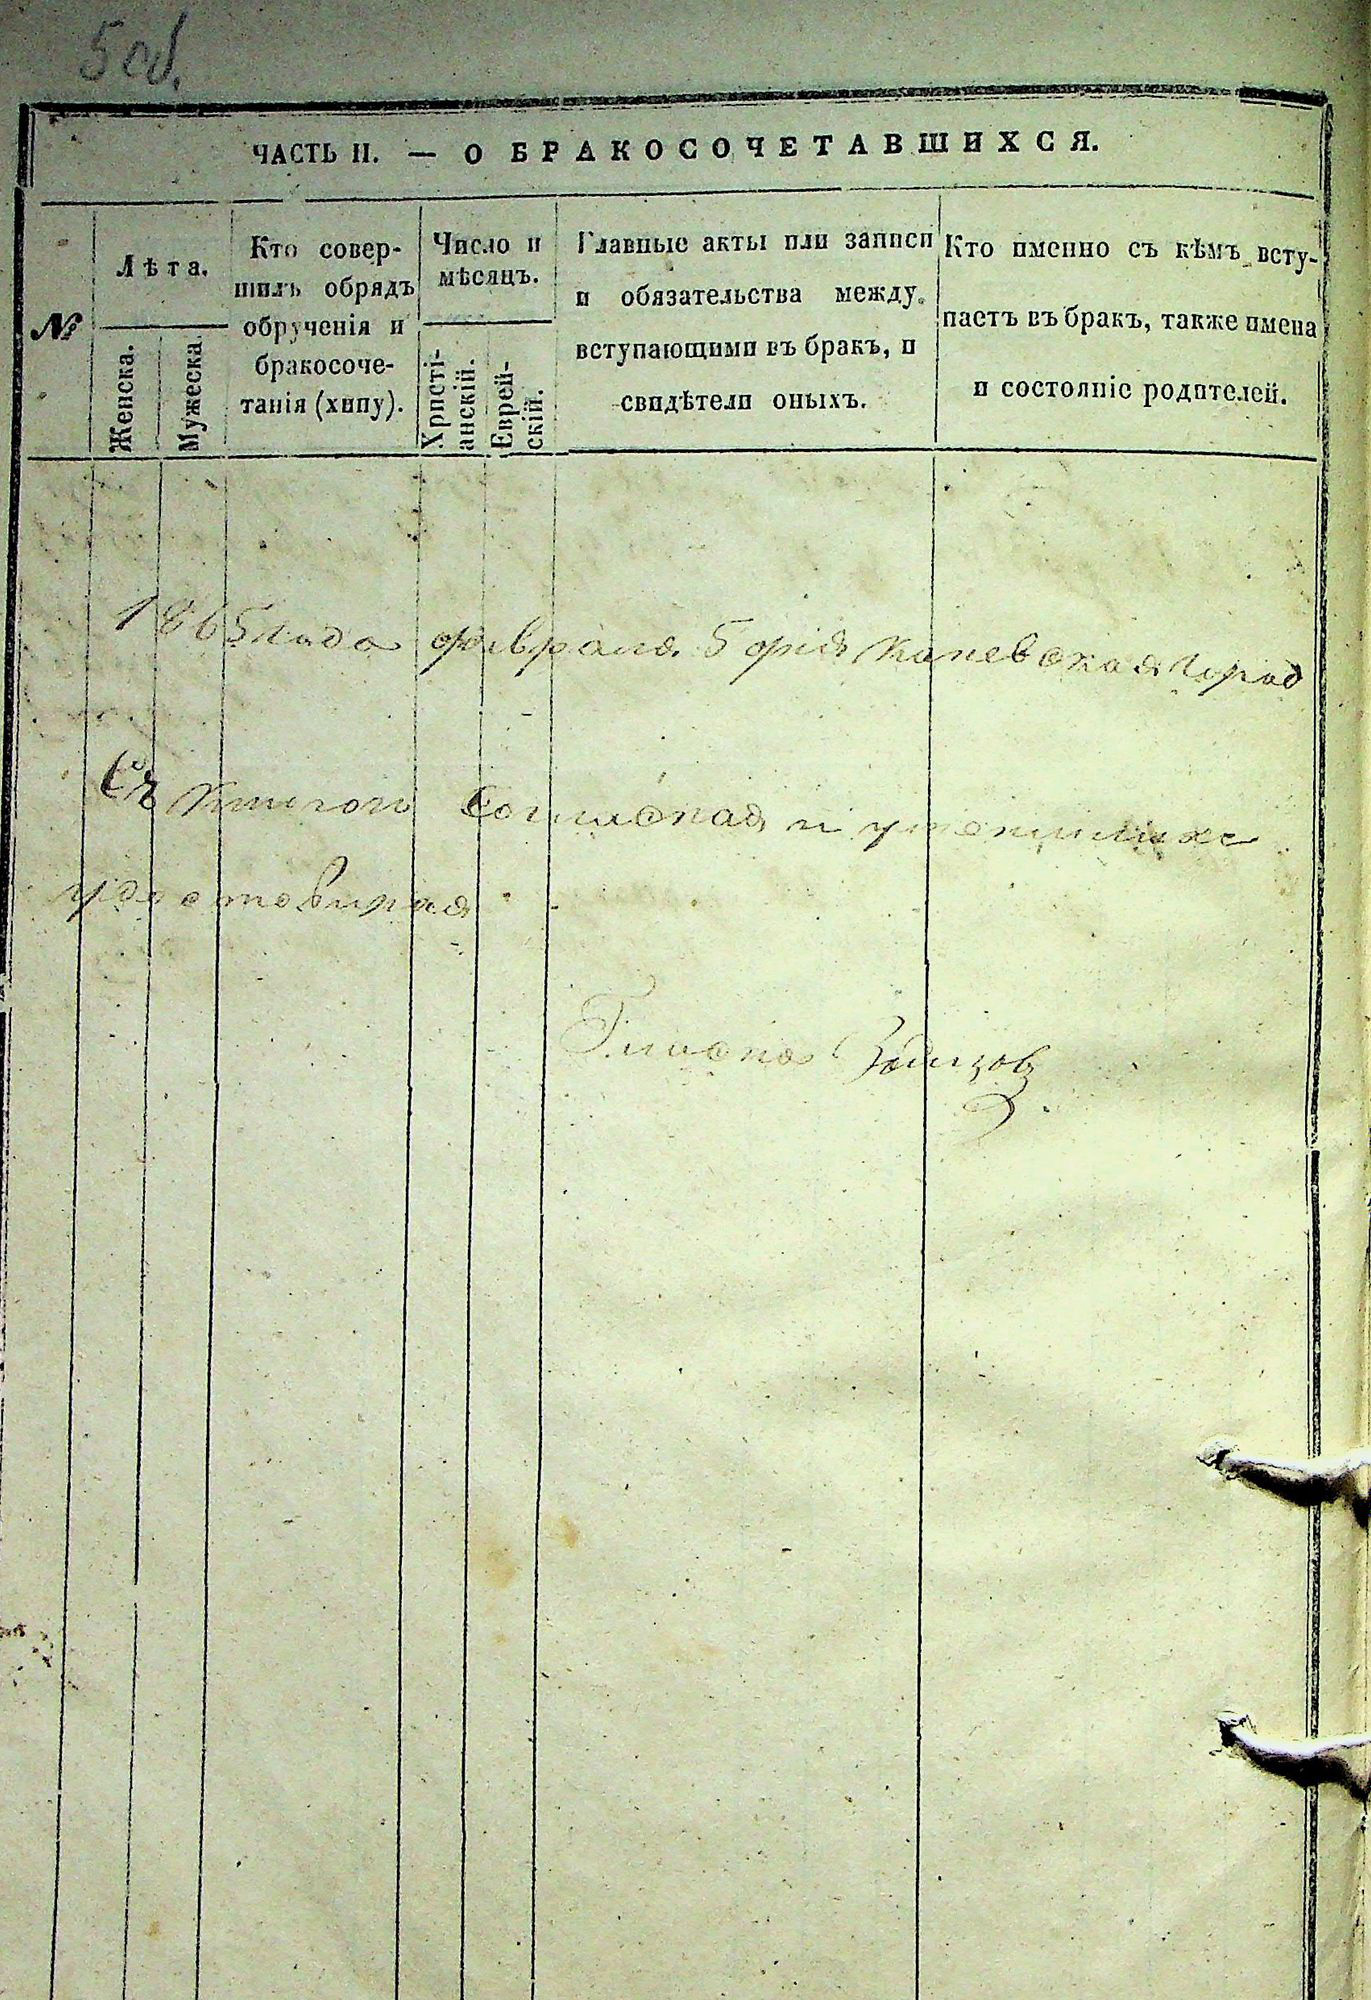 5 об.
ЧАСТЬ II. — О БРАКОСОЧЕТАВШИХСЯ.
№
Лѣта.
Женска.
Мужеска.
Кто совер-
шилъ обрядъ
обрученія и
бракосоче-
танія (хипу).
Число и
мѣсяцъ.
Христі-
анскій.
Еврей-
скій.
Главные акты или записи
и обязательства между
вступающими въ бракъ, и
свидѣтели оныхъ.
Кто именно съ кѣмъ всту-
паетъ въ бракъ, также имена
и состояніе родителей.
1865 года февраля 5 дня Каневская Город
Съ